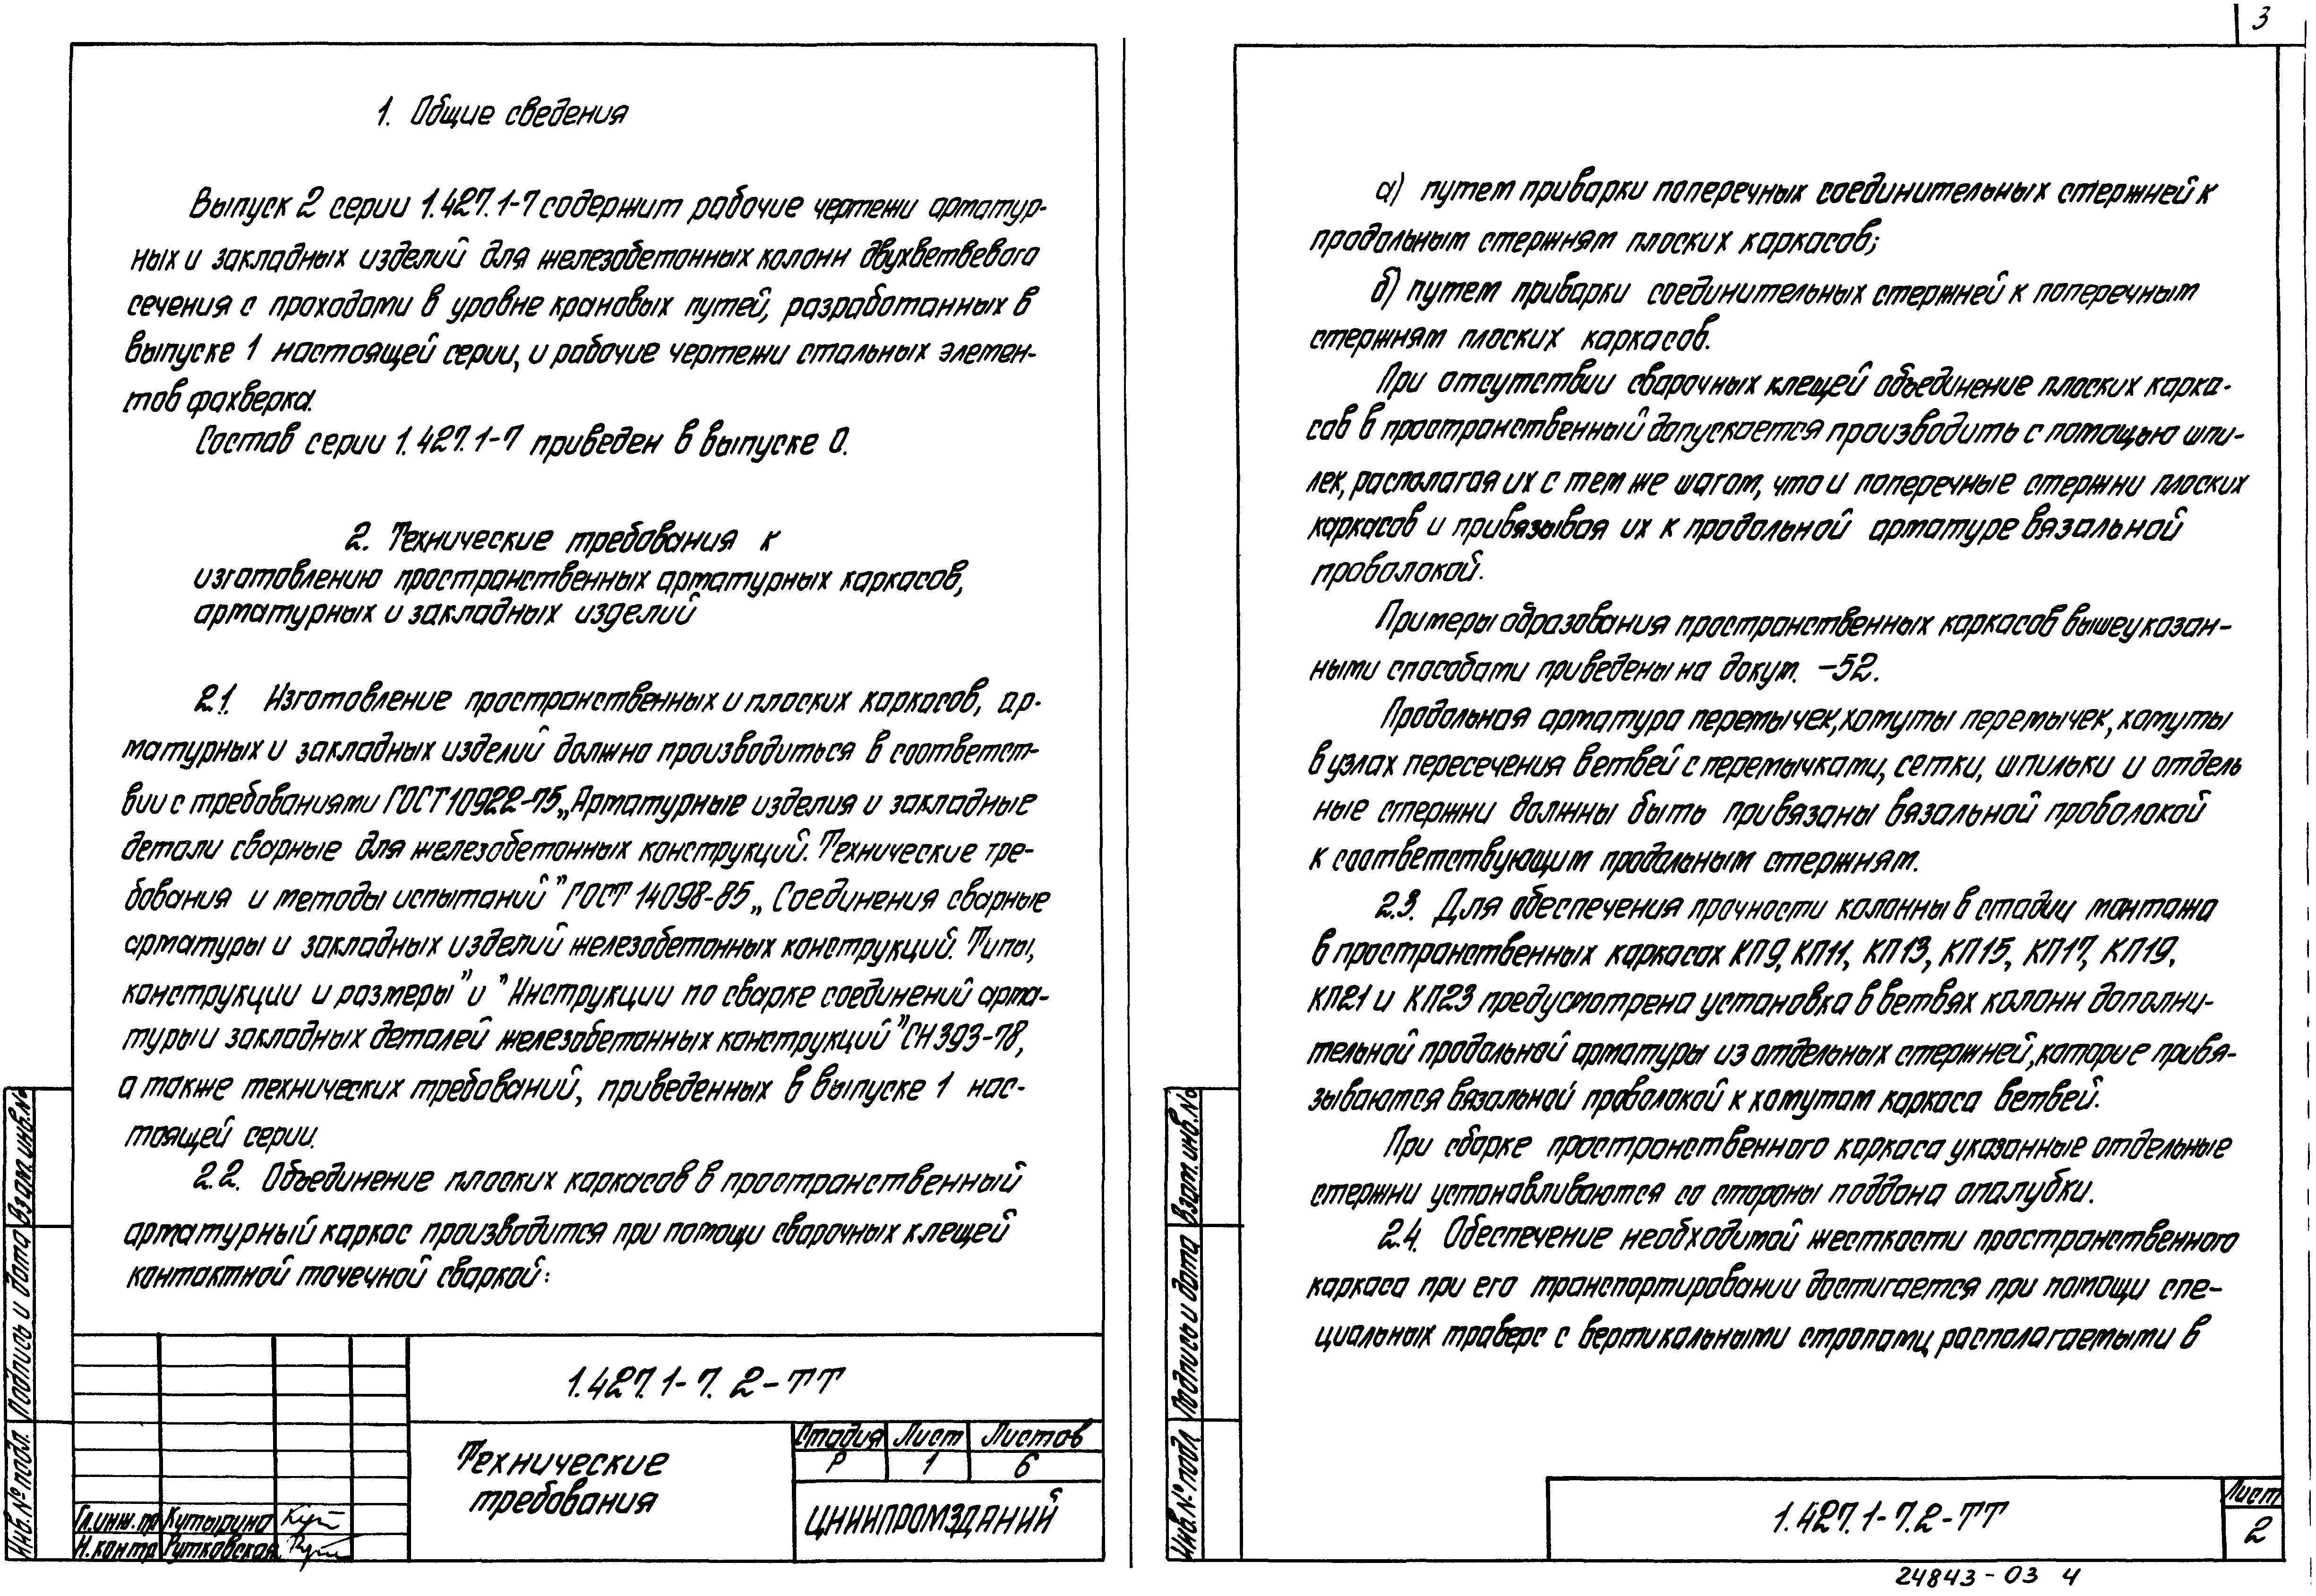 1. Общие сведения
Выпуск 2 серии 1.427.1-7 содержит рабочие чертежи арматур-
ных и закладных изделий для железобетонных колонн двухветвевого
сечения с проходами в уровне крановых путей, разработанных в
выпуске 1 настоящей серии, и рабочие чертежи стальных элемен-
тов фахверка.
Состав серии 1.427.1-7 приведен в выпуске 0.
2. Технические требования к
изготовлению пространственных арматурных каркасов,
арматурных и закладных изделий
2.1. Изготовление пространственных и плоских каркасов, ар-
матурных и закладных изделий должно производиться в соответст-
вии с требованиями ГОСТ 10922-75 „Арматурные изделия и закладные
детали сварные для железобетонных конструкций. Технические тре-
бования и методы испытаний" ГОСТ 14098-85 „Соединения сварные
арматуры и закладных изделий железобетонных конструкций. Типы,
конструкции и размеры" и "Инструкции по сварке соединений арма-
туры и закладных деталей железобетонных конструкций" СН 393-78,
а также технических требований, приведенных в выпуске 1 нас-
тоящей серии.
2.2. Объединение плоских каркасов в пространственный
арматурный каркас производится при помощи сварочных клещей
контактной точечной сваркой:
1.427.1-7.2-ТТ
Технические
требования
Стадия Лист Листов
Р 1 6
ЦНИИПРОМЗДАНИЙ
Гл.инж.пр Кутырина
Н.контр Рутковская
Инв.№ подл. Подпись и дата Взам.инв.№
3
а) путем приварки поперечных соединительных стержней к
продольным стержням плоских каркасов;
б) путем приварки соединительных стержней к поперечным
стержням плоских каркасов.
При отсутствии сварочных клещей объединение плоских карка-
сов в пространственный допускается производить с помощью шпи-
лек, располагая их с тем же шагом, что и поперечные стержни плоских
каркасов и привязывая их к продольной арматуре вязальной
проволокой.
Примеры образования пространственных каркасов вышеуказан-
ными способами приведены на докум. -52.
Продольная арматура перемычек, хомуты перемычек, хомуты
в узлах пересечения ветвей с перемычками, сетки, шпильки и отдель
ные стержни должны быть привязаны вязальной проволокой
к соответствующим продольным стержням.
2.3. Для обеспечения прочности колонны в стадии монтажа
в пространственных каркасах КП9, КП11, КП13, КП15, КП17, КП19,
КП21 и КП23 предусмотрена установка в ветвях колонн дополни-
тельной продольной арматуры из отдельных стержней, которые привя-
зываются вязальной проволокой к хомутам каркаса ветвей.
При сборке пространственного каркаса указанные отдельные
стержни устанавливаются со стороны поддона опалубки.
2.4. Обеспечение необходимой жесткости пространственного
каркаса при его транспортировании достигается при помощи спе-
циальных траверс с вертикальными стропами, располагаемыми в
1.427.1-7.2-ТТ
Лист
2
Инв.№ подл Подпись и дата Взам.инв.№
24843-03 4